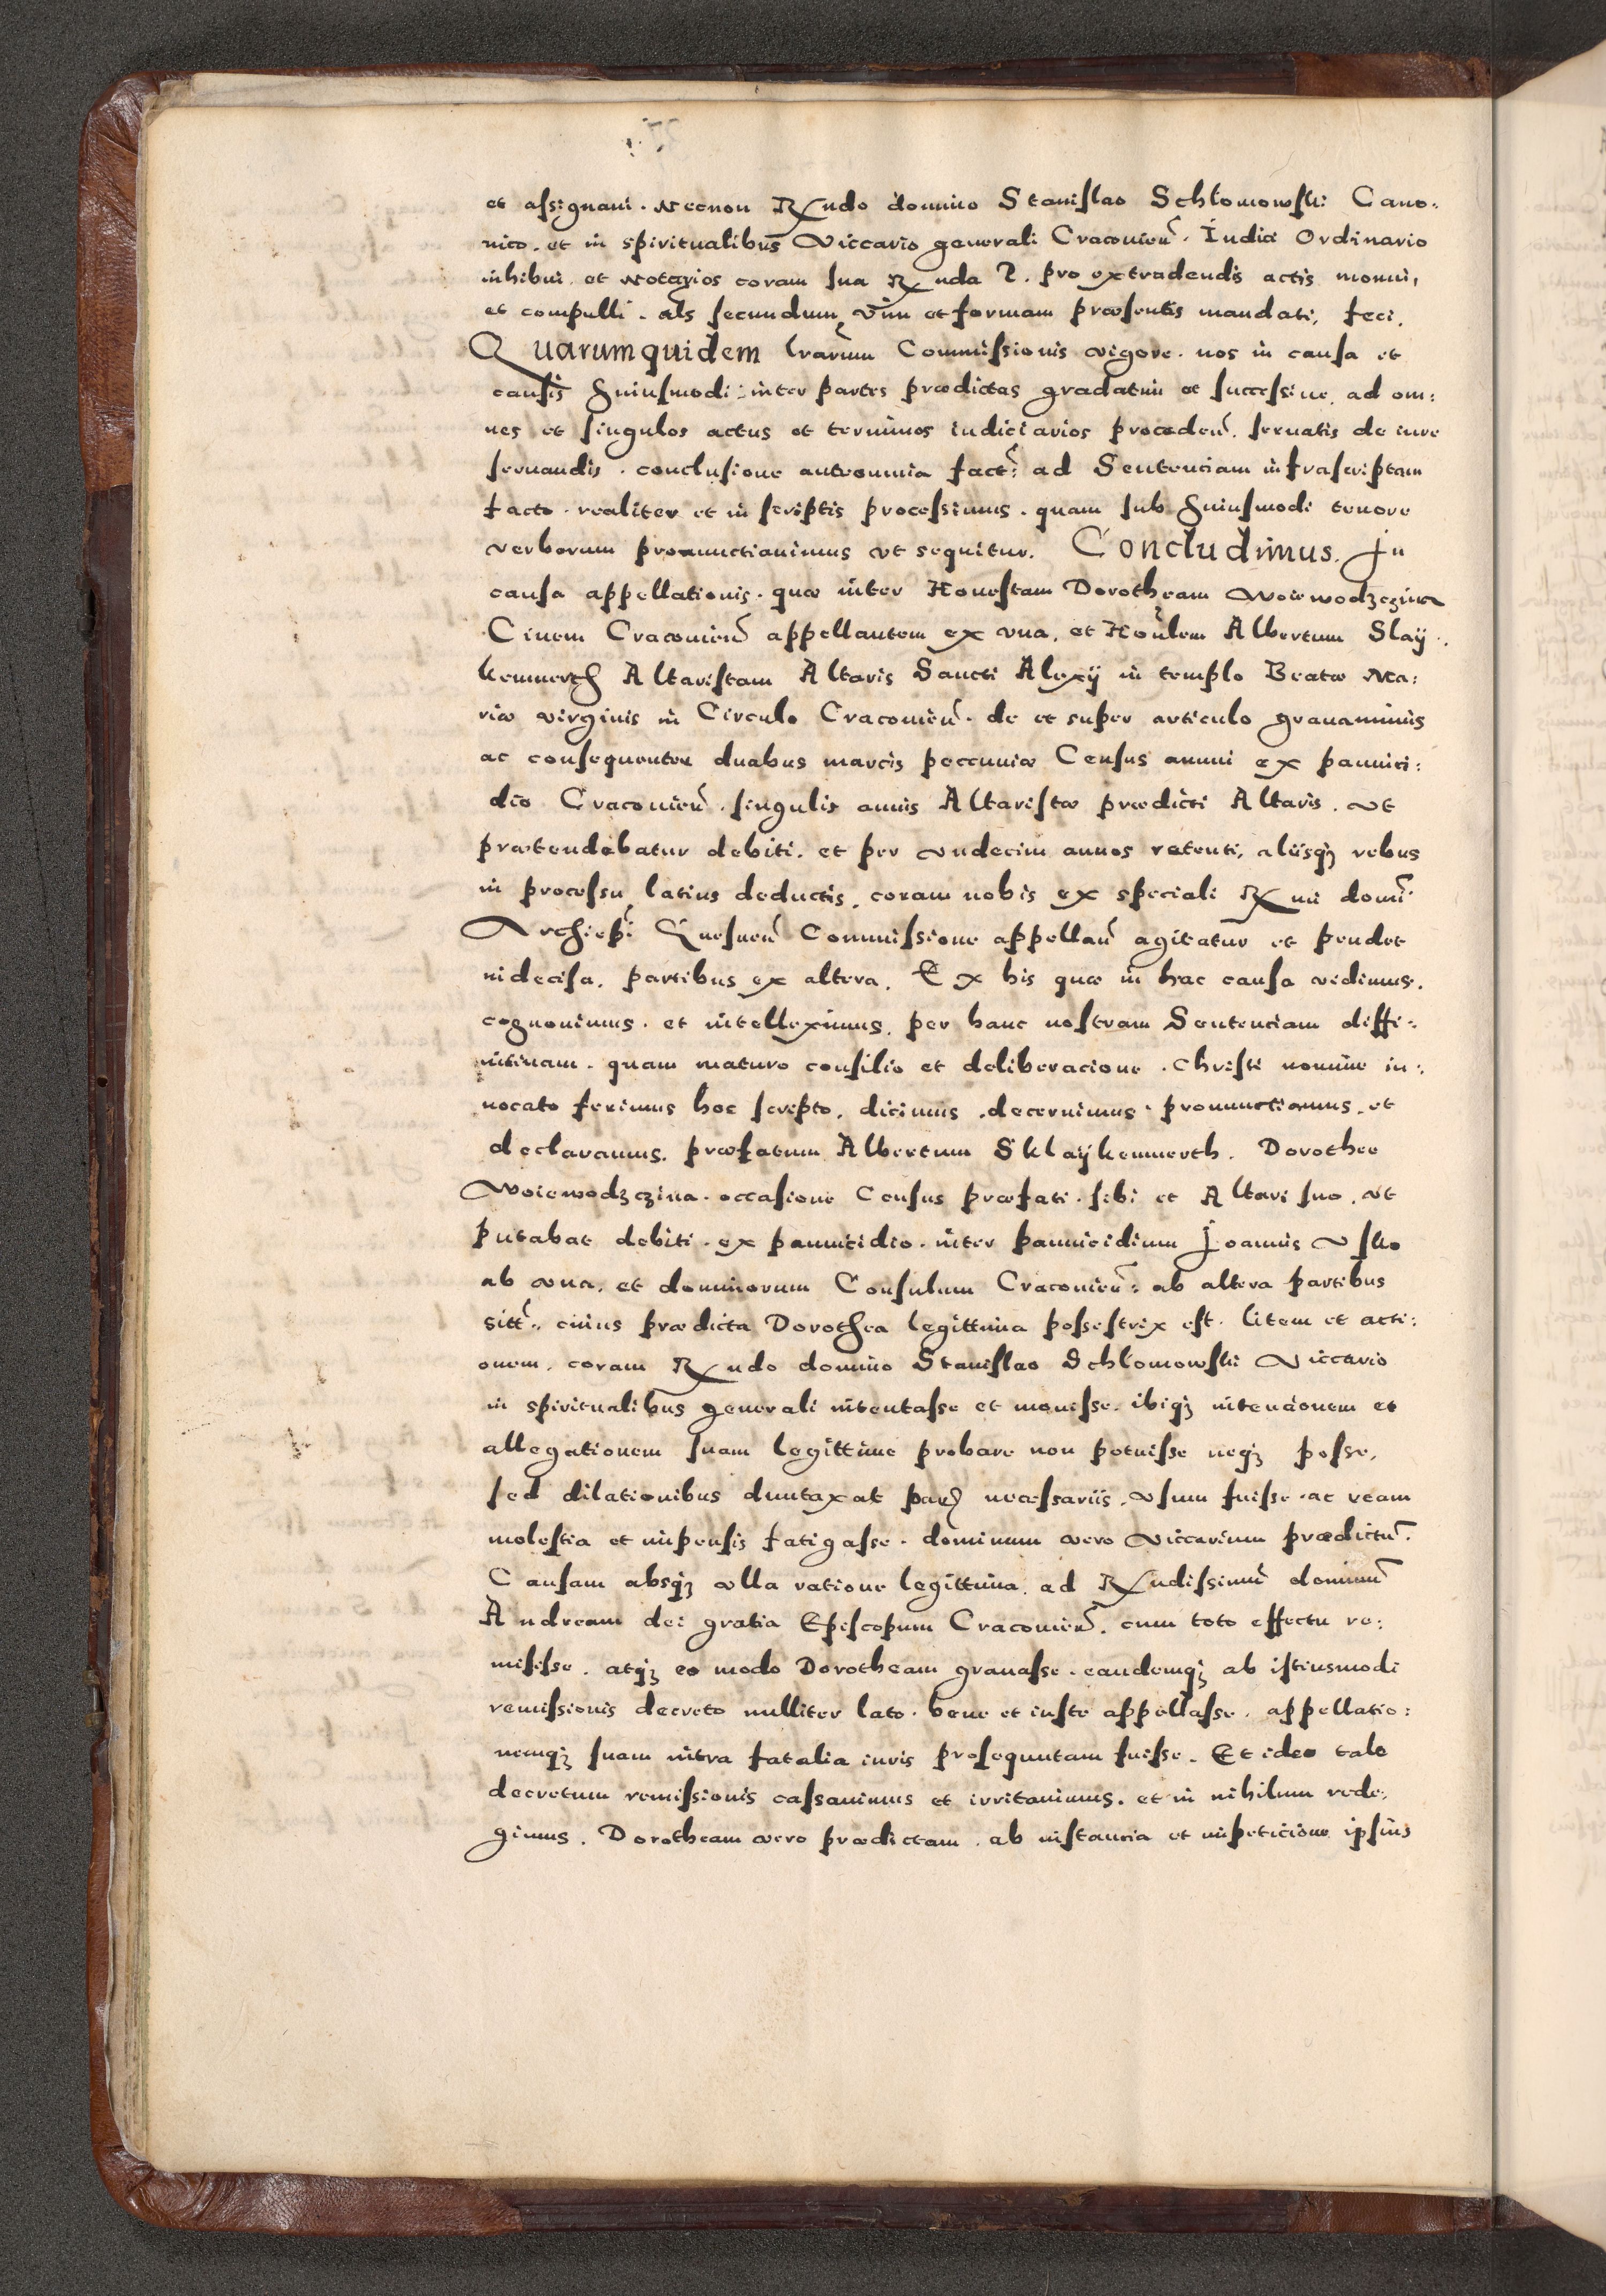 et assignaui. Necnon Rndo domino Stanislao Schlomowski Cano:
nico. et in spiritualibus Viccario generali Cracouien̄. Iudici Ordinario
inhibui et Notarios coram sua Rnda P. pro extradendis actis monui,
et compulli. als̄ secundum vim et formam præsentis mandati, feci.
Quarumquidem lrārum Commissionis vigore. nos in causa et
causis huiusmodi inter partes prædictas gradatim et successiue, ad om:
nes et singulos actus et terminos iudiciarios proceden̄. seruatis de iure
seruandis. conclusione autronimia fact̄: ad Sentenciam infrascriptam
facto. realiter et in scriptis processimus. quam sub huiusmodi tenore
verborum pronunctiauimus vt sequitur. Concludimus. In
causa appellationis. quæ inter Honestam Dorotheam Woiewodzczina
Ciuem Cracouien̄ appellantem ex vna, et Hon̄lem Albertum Slaÿ.
kemnerth Altaristam Altaris Sancti Alexÿ in templo Beatæ Ma:
riæ virginis in Circulo Cracouien̄. de et super articulo grauaminis
ac consequenter duabus marcis peccuniæ Census annui ex pannici:
dio Cracouien̄. singulis annis Altaristæ prædicti Altaris. vt
prætendebatur debiti. et per vndecim annos retenti, aliisqȝ rebus
in processu latius deductis, coram nobis ex speciali Rmi domī
Archiepī Gnesnen̄ Commissione appellan̄ agitatur et pendet
indecisa. partibus ex altera. Ex his quæ in hac causa vidimus.
cognouimus. et intelleximus, per hanc nostram Sentenciam diffi:
nitiuam. quam maturo consilio et deliberacione. Christi nomine in:
uocato ferimus hoc scripto. dicimus. decernimus. pronunctiamus. et
declaramus. præfatum Albertum Sklaÿkemnerth. Dorothee
Woiewodzczina. occasione Census præfati. sibi et Altari suo. vt
putabat debiti. ex pannicidio. inter pannicidium Joannis Vsko
ab vna, et dominorum Consulum Cracouien̄: ab altera partibus
sitt̄. cuius prædicta Dorothea legittima possestrix est. litem et acti:
onem, coram Rndo domino Stanislao Schlomowski Viccario
in spiritualibus generali intentasse et mouisse. ibiqȝ intencionem et
allegationem suam legittime probare non potuisse neqȝ posse,
sed dilationibus duntaxat parū necessariis. vsum fuisse. ac ream
molestia et impensis fatigasse. dominum vero Viccarium prædictū.
Causam absqȝ vlla ratione legittima. ad Rndissimū dominū
Andream dei gratia Episcopum Cracouien̄. cum toto effectu re:
misisse. atqȝ eo modo Dorotheam grauasse. eandemqȝ ab istiusmodi
remissionis decreto nulliter lato. bene et iuste appellasse. appellatio:
nemqȝ suam intra fatalia iuris prosequutam fuisse. Et ideo tale
decretum remissionis cassauimus et irritauimus. et in nihilum rede:
gimus. Dorotheam vero prædictam. ab instancia et impeticione ipsius